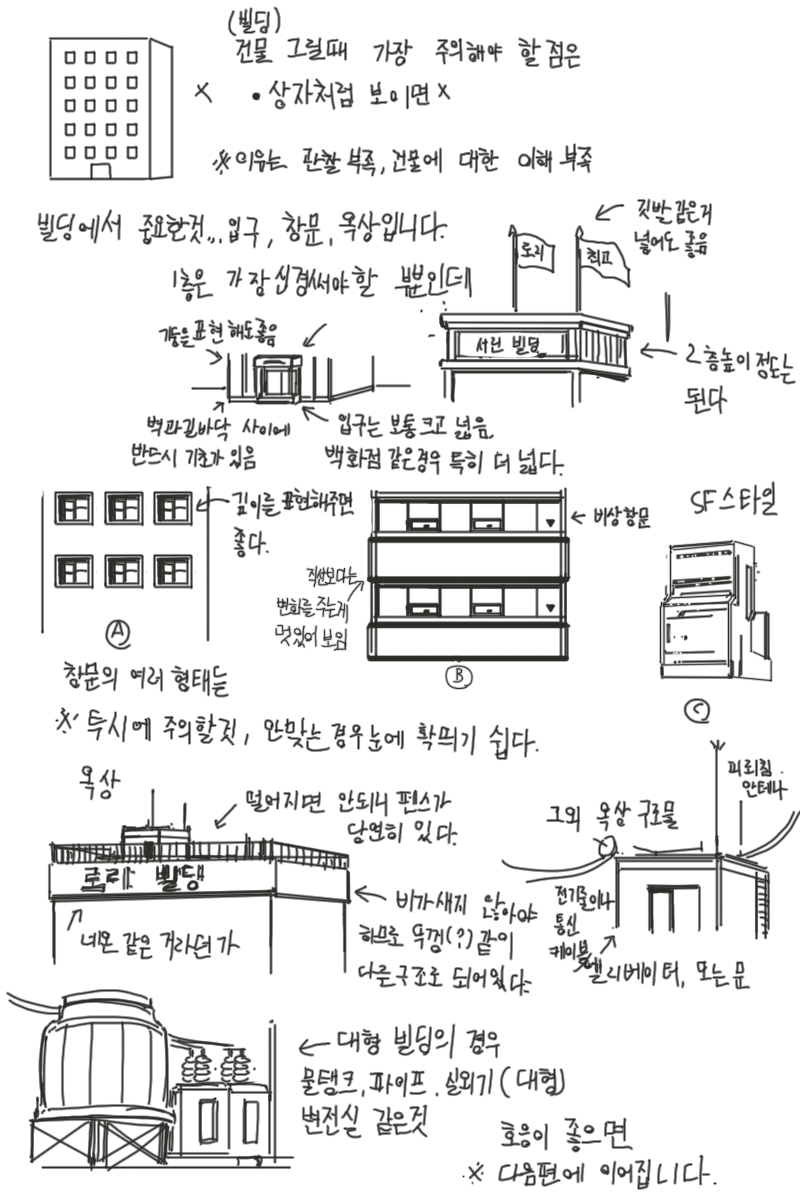 (빌딩)
건물 그릴때 가장 주의해야 할 점은
• 상자처럼 보이면 x
※이유는 관찰 부족, 건물에 대한 이해 부족
빌딩에서 중요한것... 입구, 창문, 옥상입니다.
깃발 같은거
넣어도 좋음
1층은 가장 신경써야할 부분인데
토리
최고
기둥을 표현 해도 좋음
서린 빌딩
2층높이 정도는
된다
벽과 길바닥 사이에
반드시 기초가 있음
입구는 보통 크고 넓음
백화점 같은경우 특히 더 넓다.
깊이를 표현해주면
좋다.
비상창문
SF스타일
직선보다는
변화를 주는게
멋있어 보임
A
B
C
창문의 여러 형태들
※ 투시에 주의할것, 안맞는 경우 눈에 확띄기 쉽다.
옥상
떨어지면 안되니 펜스가
당연히 있다.
그외 옥상 구조물
피뢰침.
안테나
빌딩
네온 같은 거라던가
비가새지 않아야
하므로 뚜껑(?)같이
다른구조로 되어있다.
전기줄이나
통신
케이블
엘리베이터, 또는 문
대형 빌딩의 경우
물탱크, 파이프, 실외기(대형)
변전실 같은것
호응이 좋으면
※ 다음편에 이어집니다.